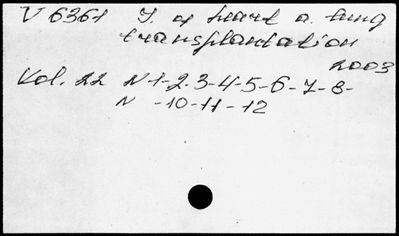 V 6361 J. of heart a. lung
transplantation
2003
Vol. 22 N-1-2-3-4-5-6-7-8-
N -10-11-12